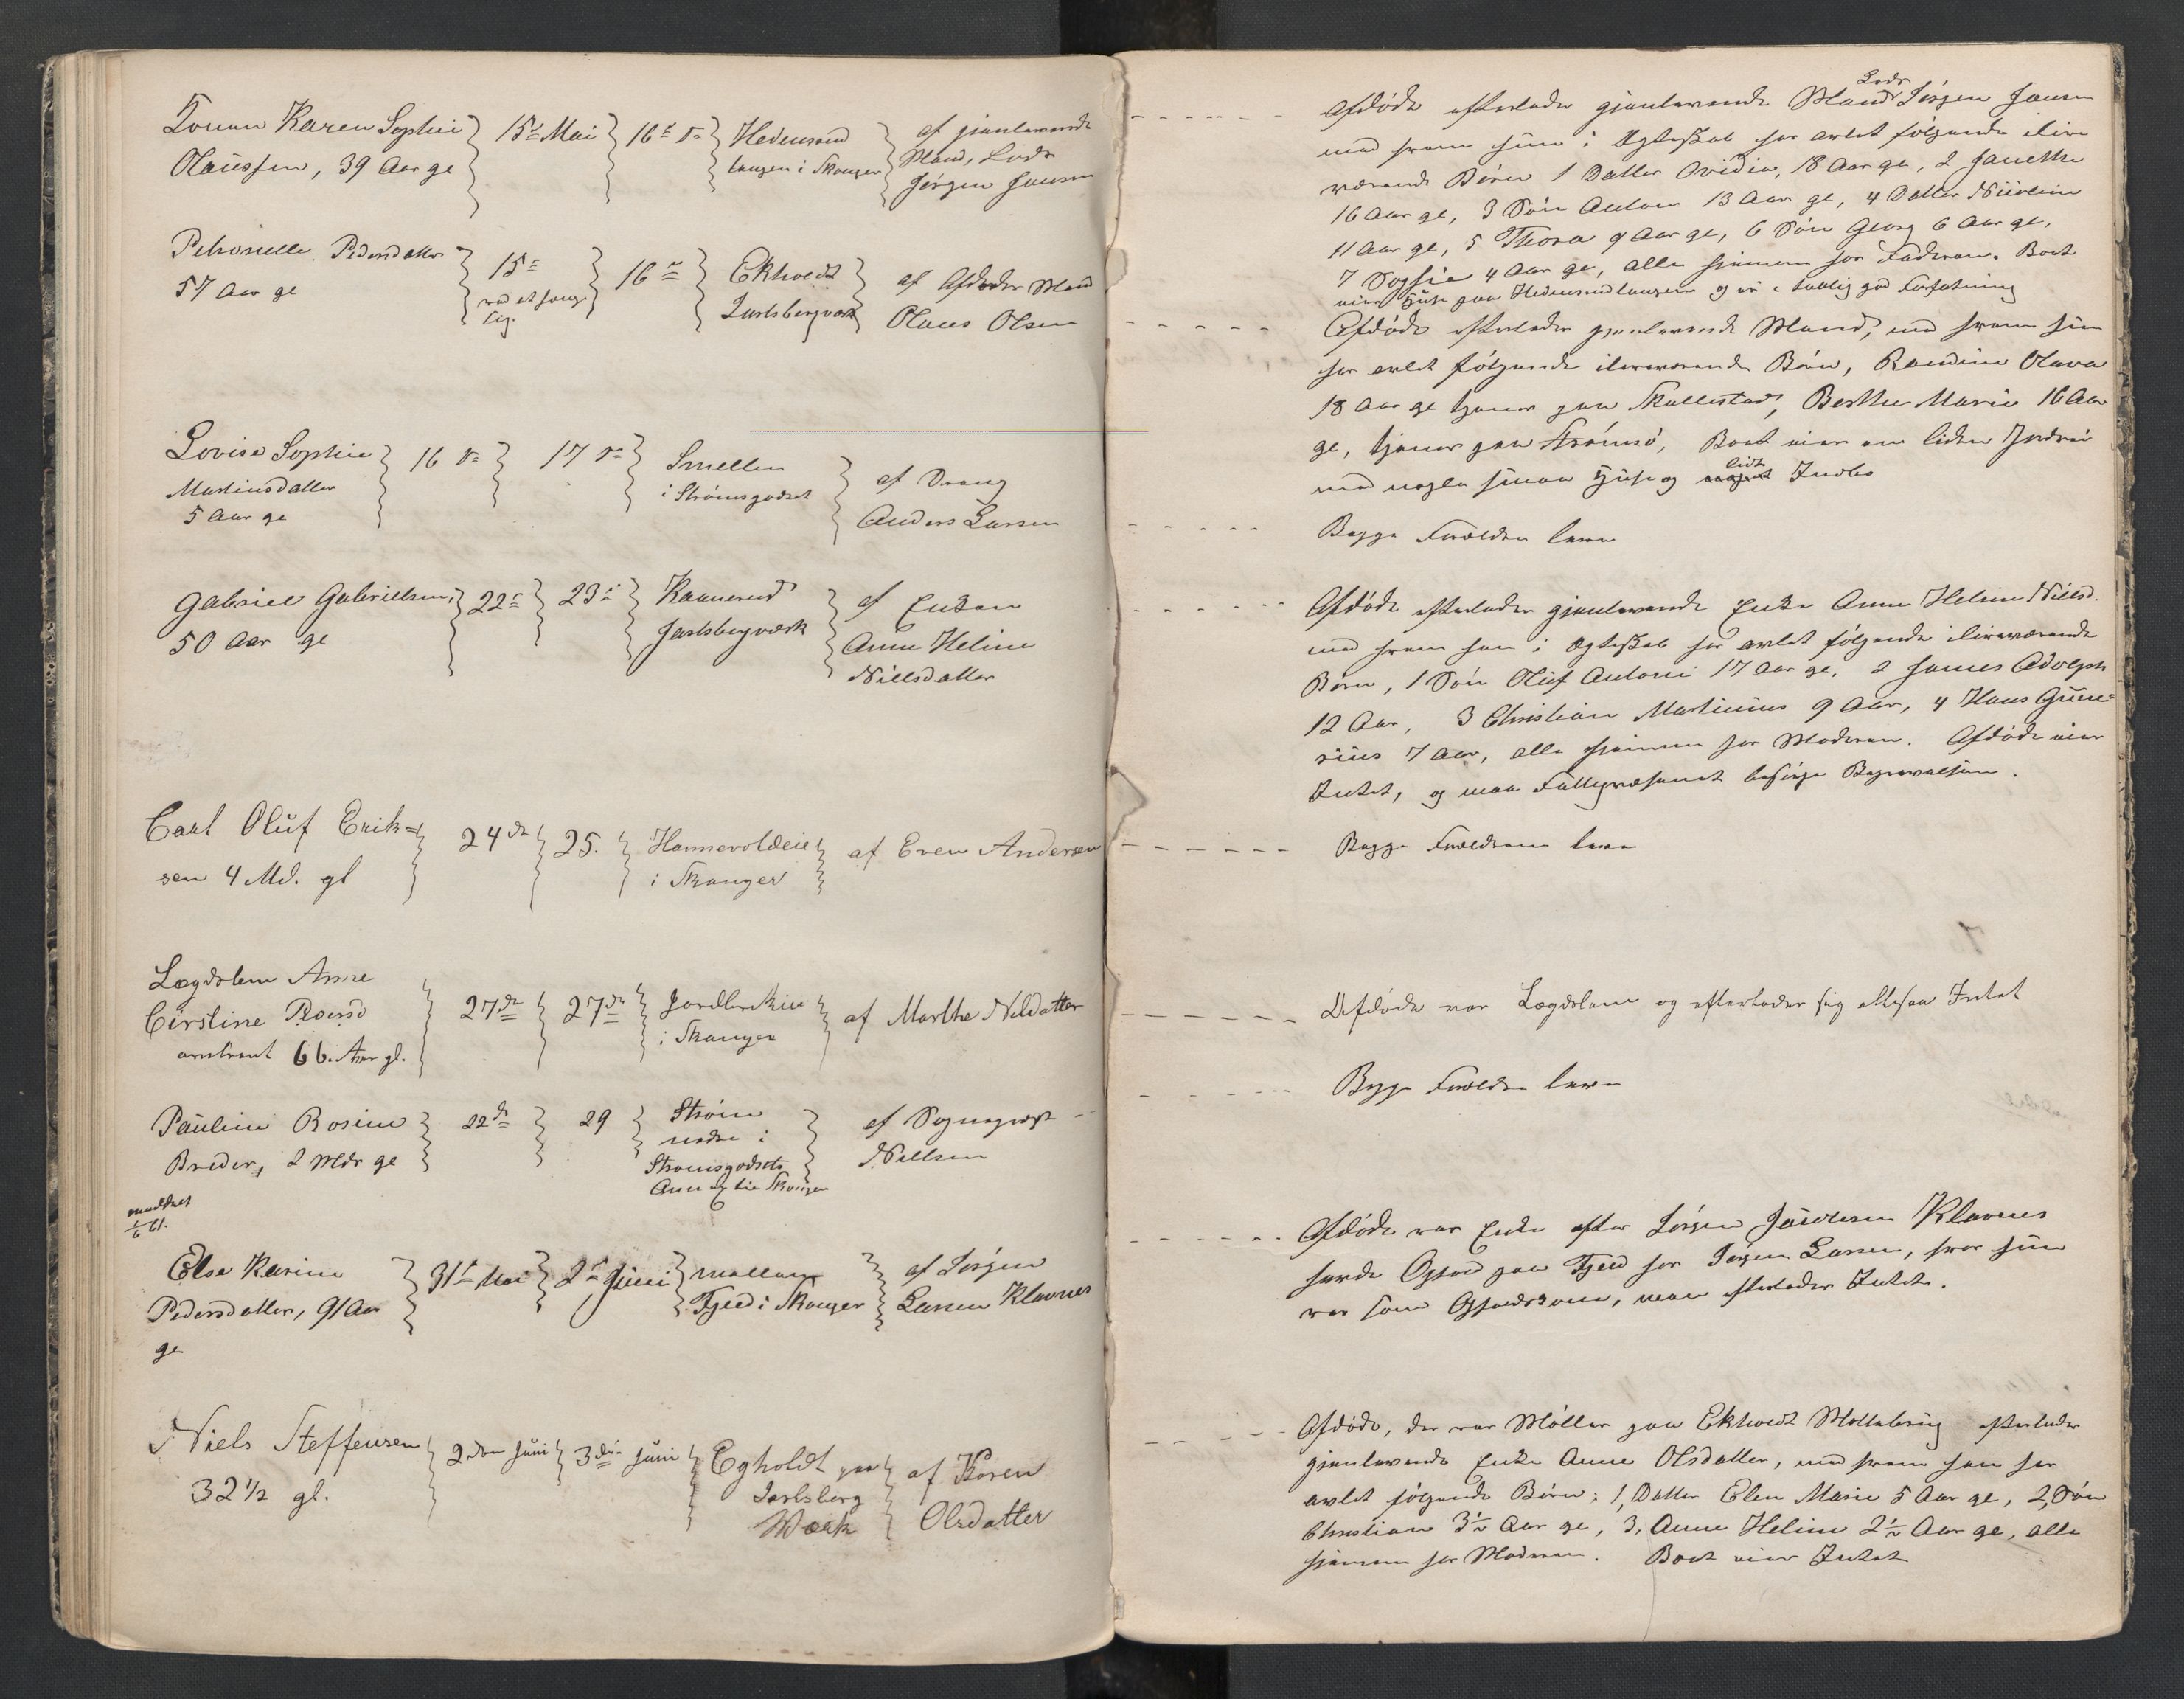 Karen Sophie } 15de Mai } 16de Ds } Hedensrud } af gjenlevende
Olaussen, 39 Aar gl tangen i Skouger Mand, Lods
Jørgen Jansen
Petronelle Pedersdatter } 15de } 16de } Ekholdt } af Afdødes Mand
57 Aar gl Jarlsbergværk Olaus Olsen
Lovise Sophie } 16 Ds } 17 Ds } Smellen } af Dreng
Martinsdatter i Strømsgodset Anders Larsen
5 Aar gl
Gabriel Gabrielsen, } 22de } 23de } Kaanerud } af Enken
50 Aar gl Jarlsbergværk Anne Heline
Nillsdatter
Carl Oluf Erik= } 24de } 25. } Hannevoldeie } af Even Andersen
sen 4 Md. gl i Skouger
Lægdslem Anne
Cirstine } 27de } 27de } i Skouger } af Marthe Nilsdatter
omtrent 66. Aar gl.
Pauline Rosine } 22de } 29 } Strøm } af Sogneprest
Breder, 2 Mdr gl nedre i Nillsen
Strømsgodsets
Annex til Skouger
anmeldt
1/6 61.
Else Karine } 31te Mai } 2den Juni } mellem } af Jørgen
Pedersdatter, 91 Aar Fjeld i Skouger Larsen Klavnes
gl
Niels Steffensen } 2den Juni } 3die Juni } Egholdt paa } af Karen
32 1/2 gl. Jarlsberg Olsdatter
Værk
Afdøde efterlader gjenlevende Mand Lods Jørgen Jansen
med hvem hun i Ægteskab har avlet følgende ilive
værende Børn 1 Datter Ovidia, 18 Aar gl, 2 Janethe
16 Aar gl, 3 Søn Anton 13 Aar gl, 4 Datter
11 Aar gl, 5 Thora 9 Aar gl, 6 Søn Georg 6 Aar gl,
7 Sophie 4 Aar gl, alle hjemme hos Faderen. Boet
eier Huse paa Hedensrudtangen og er i taalig god Forfatning
Afdøde efterlader gjenlevende Mand, med hvem hun
har avlet følgende iliveværende Børn, Randine Olava
18 Aar gl tjener paa Skallestad, Berthe Marie 16 Aar
gl, tjener paa Strømsø, Boet eier en liden Jordvei
med nogle smaa Huse og lidt Indbo
Begge Forældre leve
Afdøde efterlader gjenlevende Enke Anne Heline Nillsd.
med hvem han i Ægteskab har avlet følgende iliveværende
Børn, 1 Søn Oluf Antoni 17 Aar gl, 2 James Adolph
12 Aar, 3 Christian Martinius 9 Aar, 4 Hans Gune=
rius 7 Aar, alle hjemme hos Moderen. Afdøde eier
Intet, og maa Fattigvæsenet besørge Begravelsen.
Begge Forældrene leve
Afdøde var Lægdslem og efterlader sig altsaa Intet
Begge Forældre leve
Afdøde var Enke efter Jørgen Klavnes
havde Ophold paa Fjeld hos Jørgen Larsen, hvor hun
var som Opholdskone, men efterlader Intet.
Afdøde, der var Møller paa Ekholdt Møllebrug efterlader
gjenlevende Enke Anne Olsdatter, med hvem han har
avlet følgende Børn; 1, Datter Elen Marie 5 Aar gl, 2, Søn
Christian 3 1/2 Aar gl, 3, Anne Heline 2 1/2 Aar gl, alle
hjemme hos Moderen. Boet eier Intet